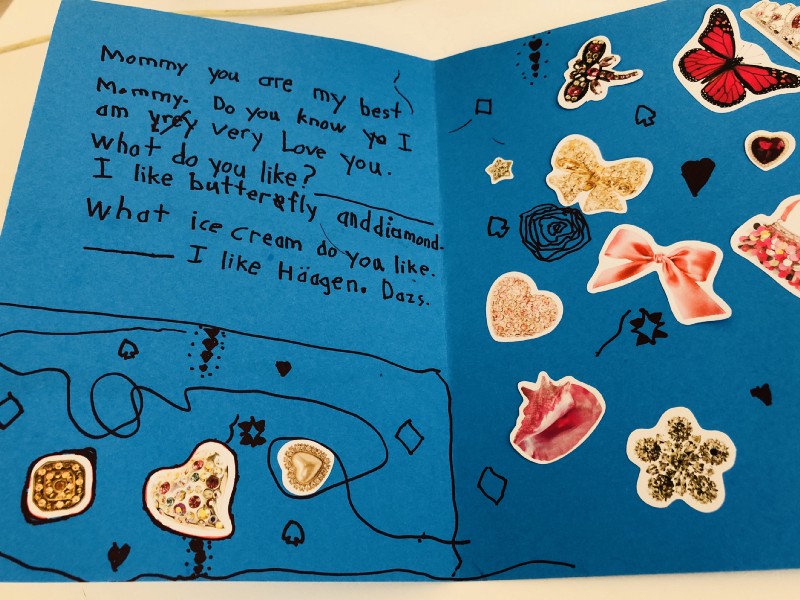 Mommy you are my best
Mommy. Do you know yo I
am very Love you.
What do you like?
I like butterefly and diamond.
What ice cream do you like.
I like Häagen. Dazs.